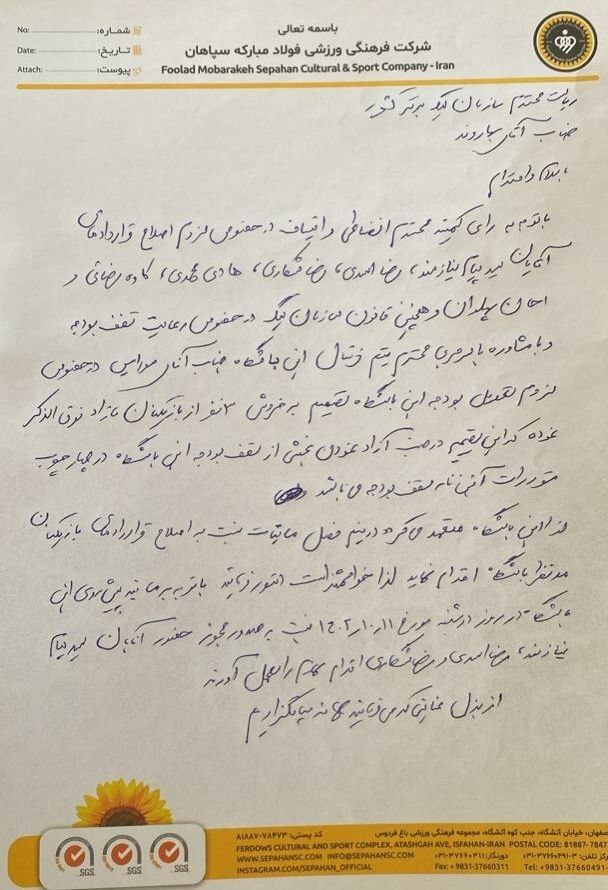 باسمه تعالی
شرکت فرهنگی ورزشی فولاد مبارکه سپاهان
Foolad Mobarakeh Sepahan Cultural & Sport Company - Iran
No: شماره:
Date: تاریخ:
Attach: پیوست:
ریاست محترم سازمان لیگ برتر کشور
جناب آقای سهاروند
با سلام و احترام
با توجه به رای کمیته محترم انضباطی و در خصوص لزوم اصلاح قراردادهای
آقایان سید پیام نیازمند، رضا اسدی، رضا شکاری، هادی محمدی، کاوه رضائی و
احسان پهلوان و همچنین قانون سازمان لیگ در خصوص رعایت سقف بودجه
و با مشاوره با سرمربی محترم تیم فوتبال این باشگاه جناب آقای مورایس در خصوص
لزوم تعدیل بودجه این باشگاه تصمیم به فروش ۳ نفر از بازیکنان مازاد فوق الذکر
نموده که این تصمیم در جهت آزاد نمودن بخشی از سقف بودجه این باشگاه در چهارچوب
مقررات آئین نامه سقف بودجه می باشد
لذا این باشگاه متعهد می گردد در نیم فصل مابقات نسبت به اصلاح قراردادهای بازیکنان
مد نظر باشگاه اقدام نماید لذا خواهشمند است دستور فرمائید با توجه به برنامه پیش روی این
باشگاه در روز دوشنبه مورخ ۱۴۰۲/۱۰/۱۱ نسبت به صدور مجوز حضور آقایان سید پیام
نیازمند، رضا اسدی و رضا شکاری اقدام لازم را بعمل آورند
از بذل عنایتی که می فرمائید سپاسگزاریم
اصفهان، خیابان آتشگاه، جنب کوه آتشگاه، مجموعه فرهنگی ورزشی باغ فردوس کد پستی: ۷۸۴۷۳-۸۱۸۸۷
FERDOWS CULTURAL AND SPORT COMPLEX, ATASHGAH AVE, ISFAHAN-IRAN POSTAL CODE: 81887-7847
WWW.SEPAHANSC.COM INFO@SEPAHANSC.COM دورنگار: ۰۳۱-۳۷۶۶۰۳۱۱ مرکز تلفن: ۳-۰۳۱-۳۷۶۶۰۴۹۱
INSTAGRAM.COM/SEPAHAN_OFFICIAL Fax: +9831-37660311 Tel: +9831-37660491
SGS SGS SGS